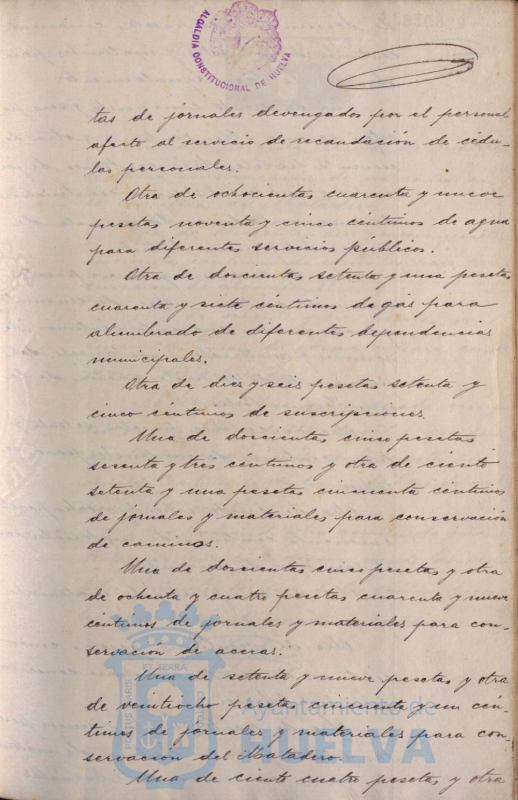 ALCALDIA CONSTITUCIONAL DE HUELVA
tas de jornales devengados por el personal
afecto al servicio de recaudación de cédu-
las personales.
Otra de ochocientas cuarenta y nueve
pesetas noventa y cinco céntimos de agua
para diferentes servicios públicos.
Otra de doscientas setenta y una pesetas
cuarenta y siete céntimos de gás para
alumbrado de diferentes dependencias
municipales.
Otra de diez y seis pesetas setenta y
cinco céntimos de suscripciones.
Una de doscientas cinco pesetas
sesenta y tres céntimos y otra de ciento
setenta y una pesetas cincuenta céntimos
de jornales y materiales para conservación
de caminos.
Una de doscientas cinco pesetas y otra
de ochenta y cuatro pesetas cuarenta y nueve
céntimos de jornales y materiales para con-
servacion de aceras.
Una de setenta y nueve pesetas y otra
de veintiocho pesetas cincuenta y un cén-
timos de jornales y materiales para con-
servación del Matadero.
Una de ciento cuatro pesetas y otra
PORTUS MARIS ET TERRAE CUSTODIO
Ayuntamiento de
HUELVA